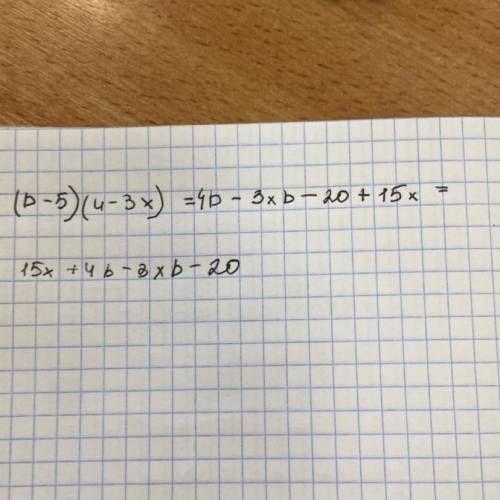 (b-5)(4-3x) =4b - 3xb - 20 + 15x =
15x + 4b - 3xb - 20